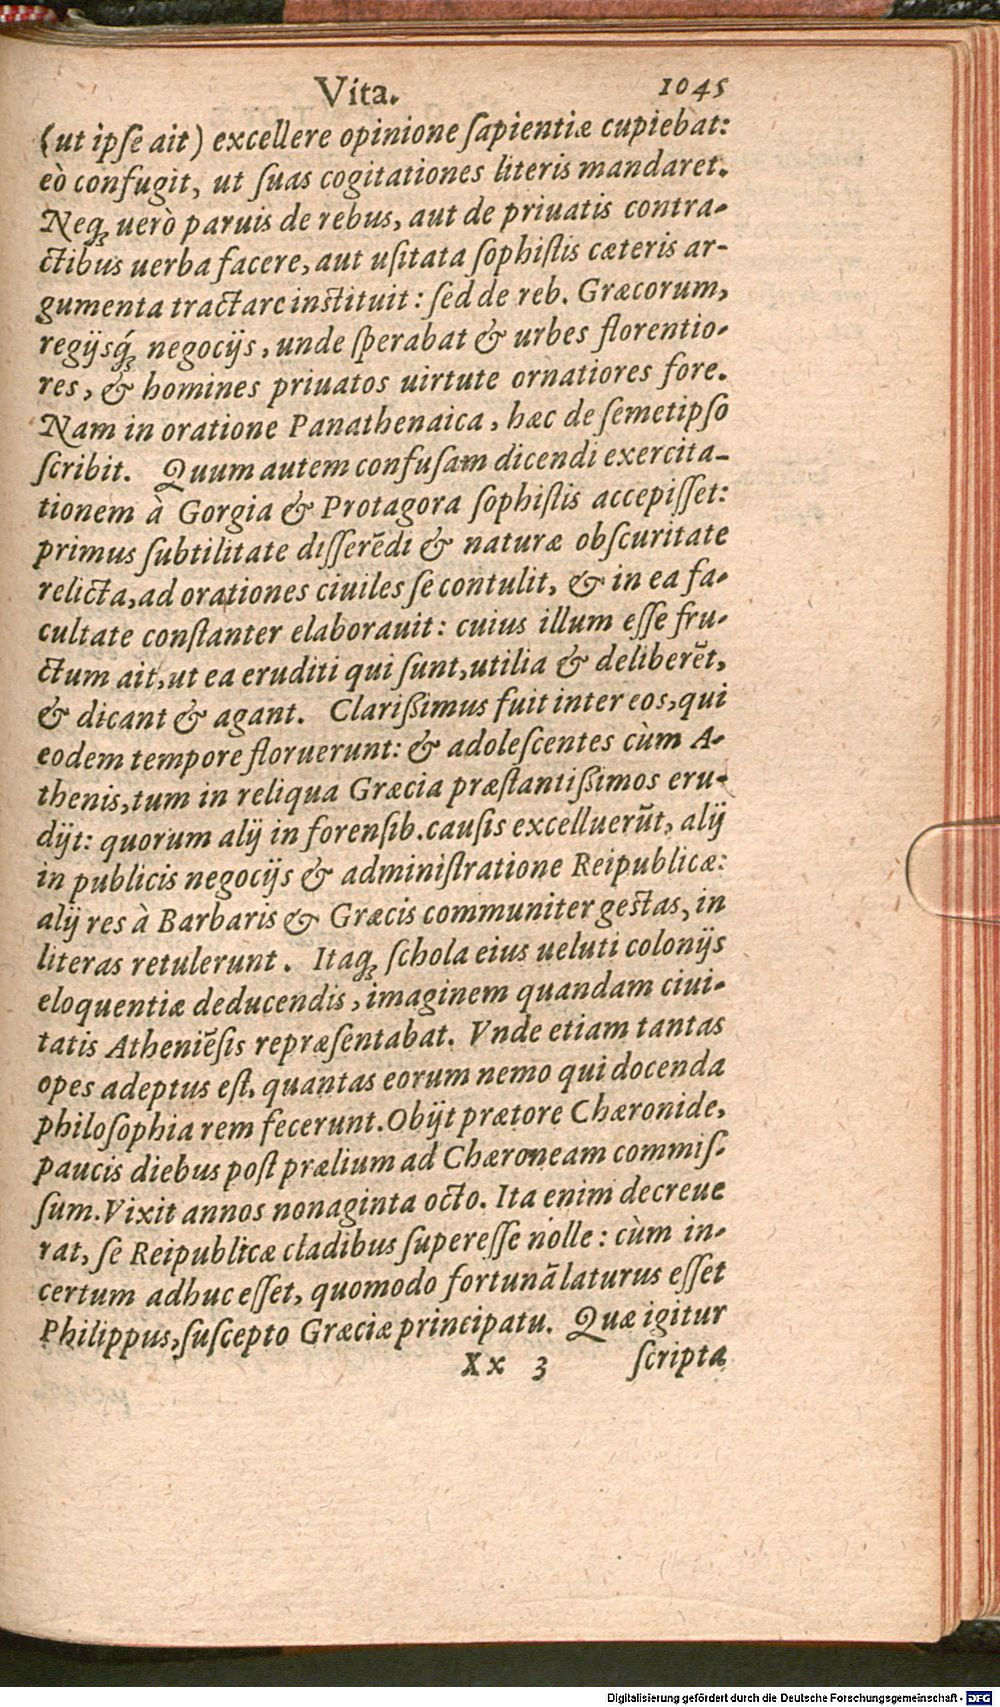 Vita. 1045
(ut ipſe ait) excellere opinione ſapientiæ cupiebat:
eò confugit, ut ſuas cogitationes literis mandaret.
Neqꝫ uerò paruis de rebus, aut de priuatis contra-
ctibus uerba facere, aut uſitata ſophiſtis cæteris ar-
gumenta tractare inſtituit: ſed de reb. Græcorum,
regijsq́ꝫ negocijs, unde ſperabat & urbes florentio-
res, & homines priuatos uirtute ornatiores fore.
Nam in oratione Panathenaica, hæc de ſemetipſo
ſcribit. Quum autem confuſam dicendi exercita-
tionem à Gorgia & Protagora ſophiſtis accepiſſet:
primus ſubtilitate diſſerẽdi & naturæ obſcuritate
relicta, ad orationes ciuiles ſe contulit, & in ea fa-
cultate conſtanter elaborauit: cuius illum eſſe fru-
ctum ait, ut ea eruditi qui ſunt, utilia & deliberẽt,
& dicant & agant. Clariſsimus fuit inter eos, qui
eodem tempore floruerunt: & adoleſcentes cùm A-
thenis, tum in reliqua Græcia præſtantiſsimos eru-
dijt: quorum alij in forenſib. cauſis excelluerũt, alij
in publicis negocijs & adminiſtratione Reipublicæ:
alij res à Barbaris & Græcis communiter geſtas, in
literas retulerunt. Itaqꝫ ſchola eius ueluti colonijs
eloquentiæ deducendis, imaginem quandam ciui-
tatis Atheniẽſis repræſentabat. Vnde etiam tantas
opes adeptus eſt, quantas eorum nemo qui docenda
philoſophia rem fecerunt. Obijt prætore Chæronide,
paucis diebus poſt prælium ad Chæroneam commiſ-
ſum. Vixit annos nonaginta octo. Ita enim decreue
rat, ſe Reipublicæ cladibus ſupereſſe nolle: cùm in-
certum adhuc eſſet, quomodo fortunã laturus eſſet
Philippus, ſuſcepto Græciæ principatu. Quæ igitur
Xx 3 ſcripta
Digitalisierung gefördert durch die Deutsche Forschungsgemeinschaft - DFG